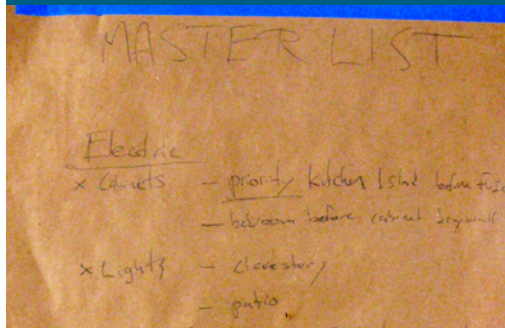 MASTER LIST
Electric
x - priority kitchen island before
- bedroom before cabinet drywall
x Lights - clerestory
- patio